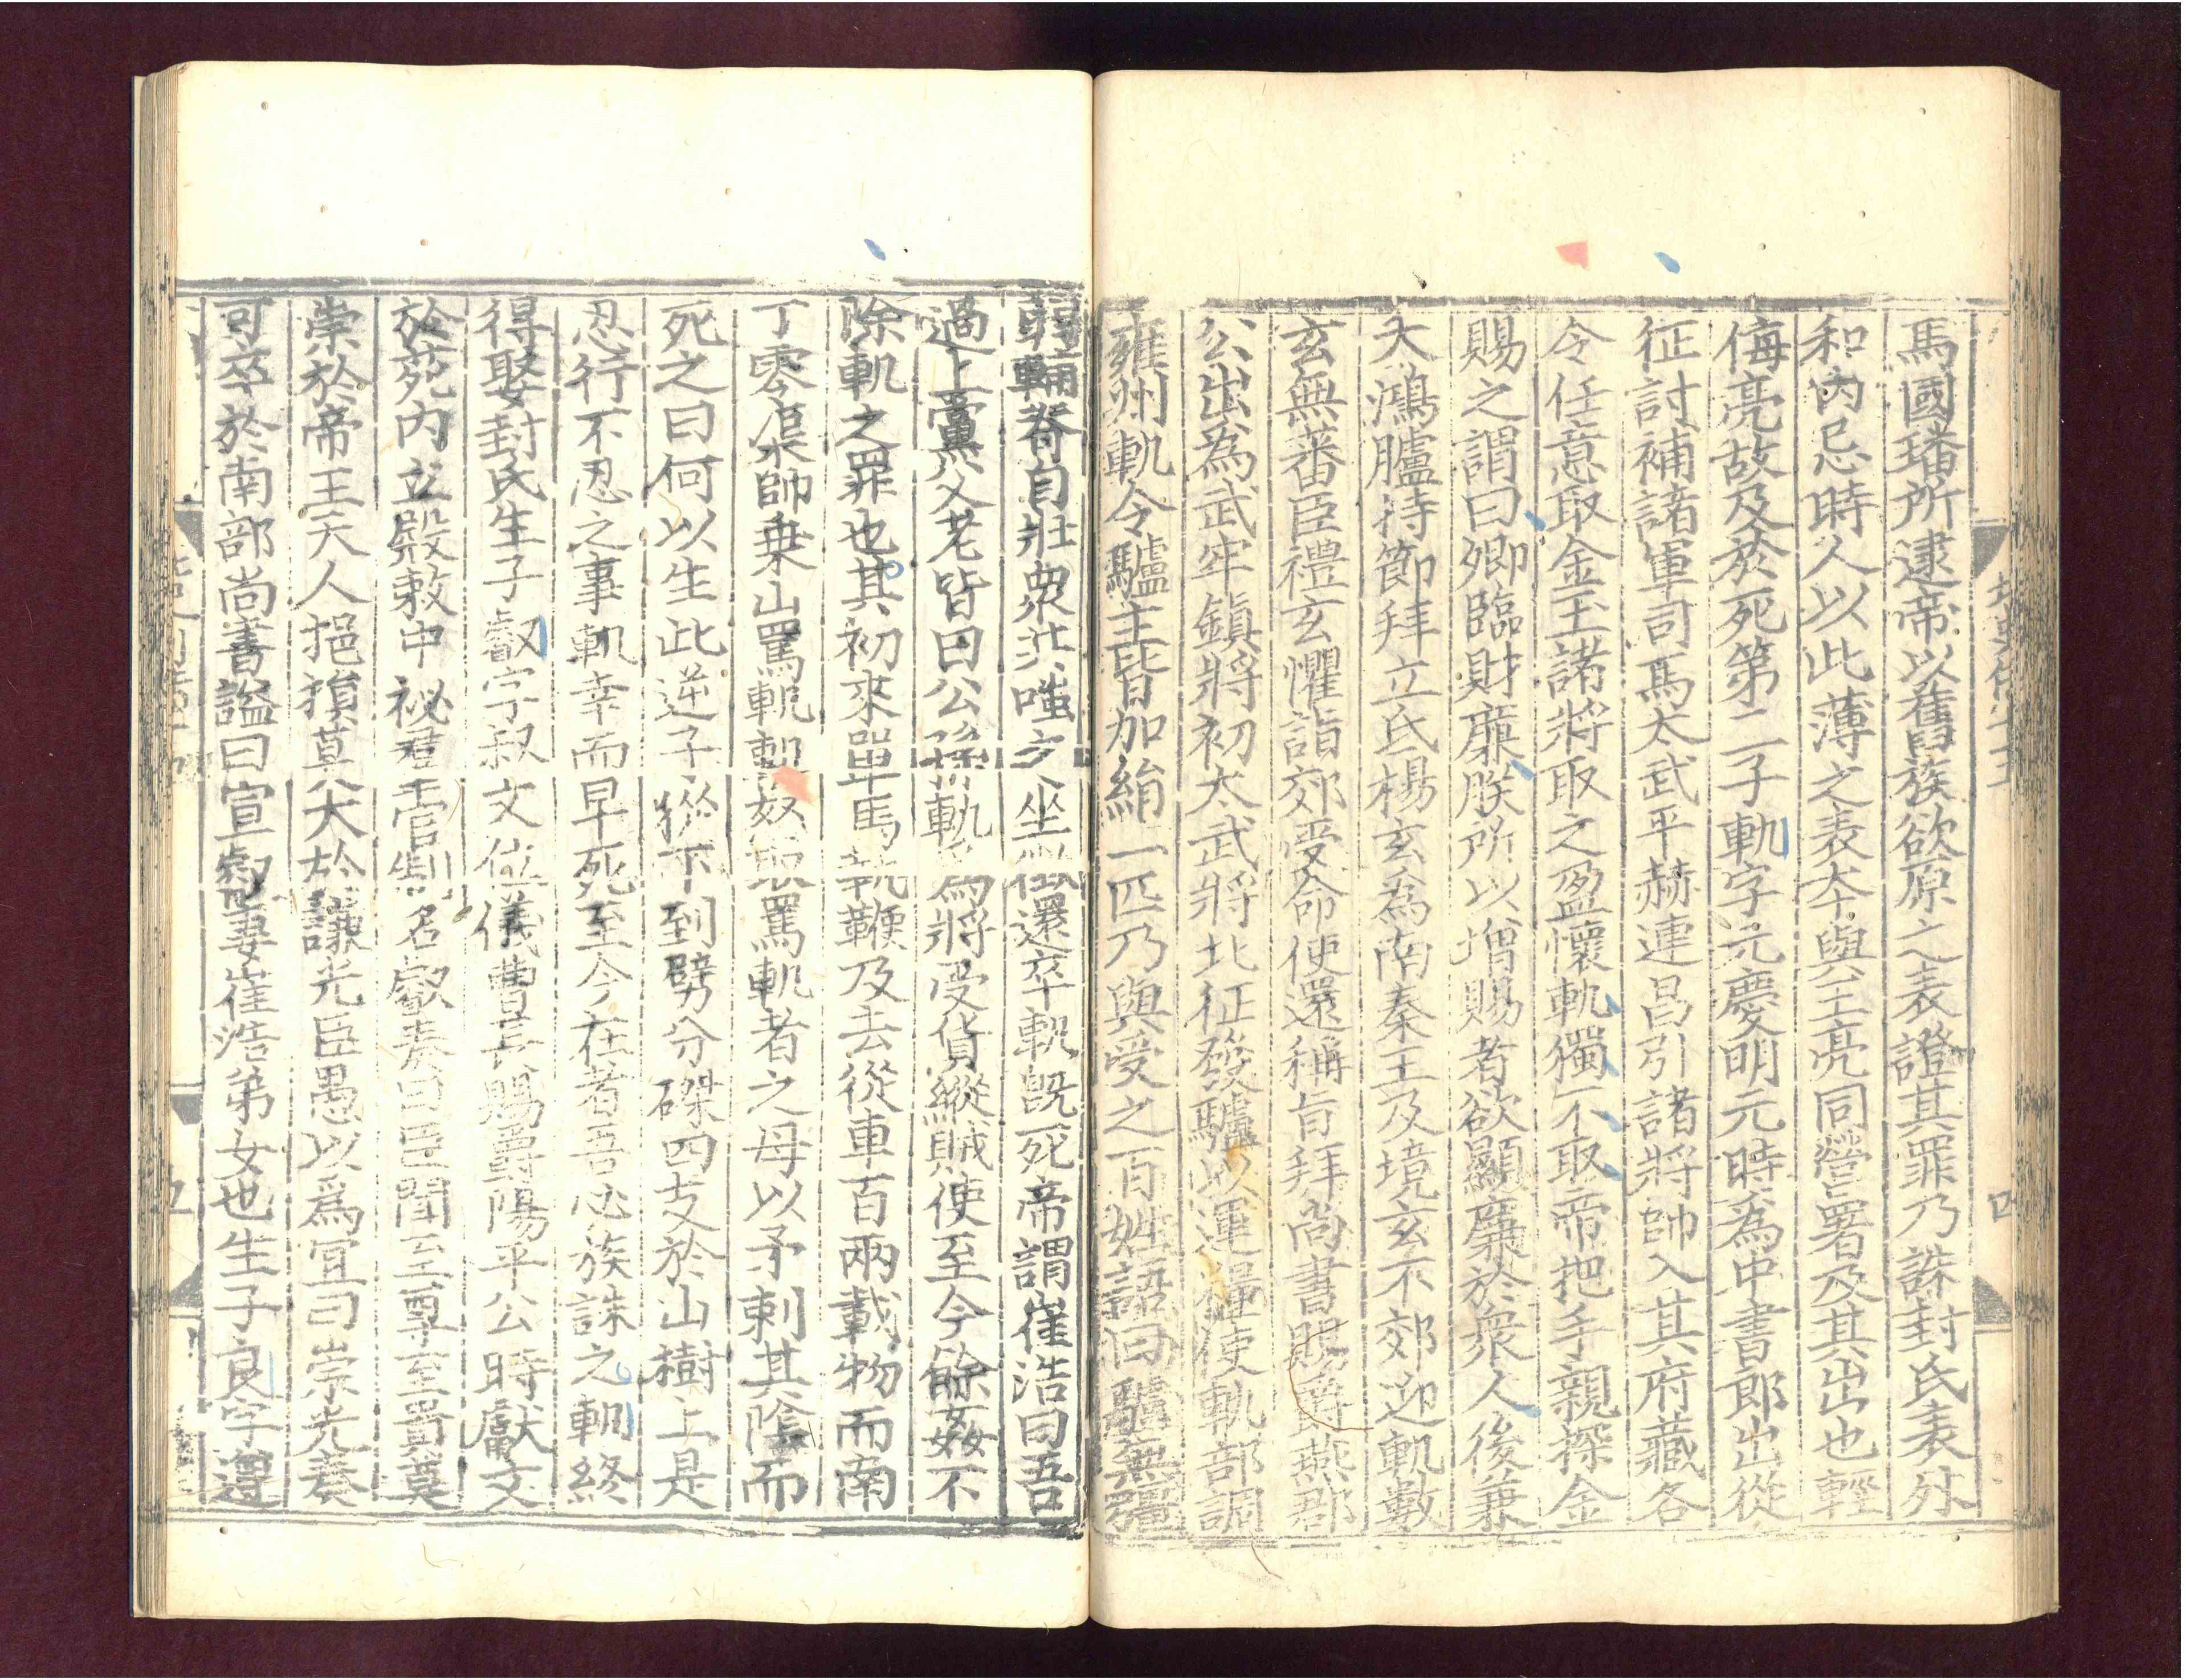 馬國璠所逮帝以舊族欲原之表證其罪乃誅封氏表外
和內忌時人以此薄之表本與王亮同營署及其出也輕
侮亮故及於死第二子軌字元慶明元時為中書郎出從
征討補諸軍司馬太武平赫連昌引諸將帥入其府藏各
令任意取金玉諸將取之盈懷軌獨不取帝把手親探金
賜之謂曰卿臨財廉朕所以增賜者欲顯廉於衆人後兼
大鴻臚持節拜立氐楊玄爲南秦王及境玄不郊迎軌數
玄無蕃臣禮玄懼詣郊受命使還稱旨拜尚書賜爵燕郡
公出為武牢鎮將初太武將北征發驢以運糧使軌部調
雍州軌令驢主皆加絹一匹乃與受之百姓語曰驢無彊
弱輔脊自壯衆共嗤之坐徵還卒軌旣死帝謂崔浩曰吾
過上黨父老皆曰公孫軌爲將受貨縱賊使至今餘姦不
除軌之罪也其初來單馬執鞭及去從車百兩載物而南
丁零渠帥乗山罵軌軌怒取罵軌者之母以矛刺其陰而
死之曰何以生此逆子從下到劈分磔四支於山樹上是
忍行不忍之事軌幸而早死至今在者吾必族誅之軌終
得娶封氏生子叡字叔文位儀曹長賜爵陽平公時獻文
於苑内立殿敕中祕羣官制名叡奏曰臣聞至尊至貴莫
崇於帝王天人挹損莫大於謙光臣愚以爲宜曰崇光奏
可卒於南部尚書謚曰宣叡妻崔浩弟女也生子良字遵